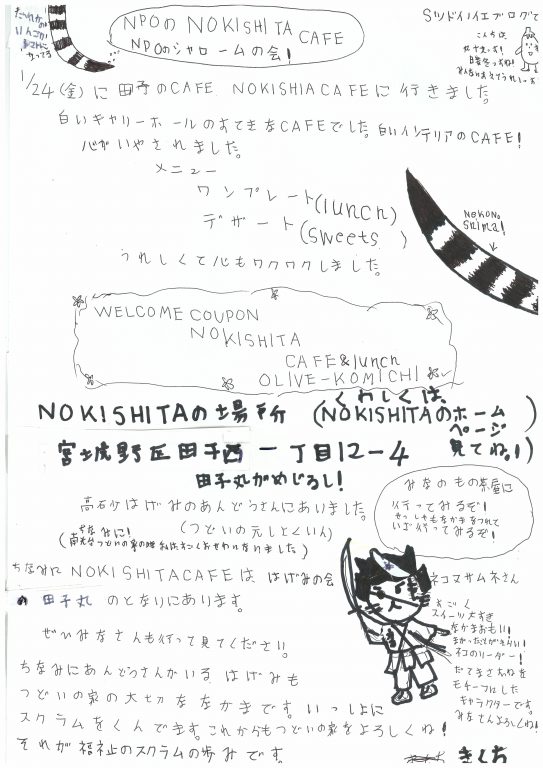 NPOの NOKISHITA CAFE
NPOのシャロームの会!
こんちは
1/24(金)に 田子のCAFE NOKISHIACAFEに行きました。
白いギャリーホールのすてきなCAFEでした。白いインテリアのCAFE!
心がいやされました。
メニュー
ワンプレート(lunch)
デザート(sweets)
NeKoNo
Shima!
うれしくて心もワクワクしました。
WELCOME COUPON
NOKISHITA
CAFE&lunch
OLIVE-KOMICHI
NOKISHITAの場所 (くわしくは、NOKISHITAのホームページ見てね。!)
宮城野区田子西一丁目12-4
田子丸がめじるし!
高砂はげみのあんどうさんにあいました。
(つどいの元しょくいん)
ちなみに!
みなのもの茶屋に
行ってみるぞ!
いざ行ってみるぞ!
ちなみに NOKISHITACAFEは はげみの会
の 田子丸 のとなりにあります。
ネコマサムネさん
すごく
スイーツ大すき
なかまおもい!
ネコのリーダー!
だてまさむねを
モチーフにした
キャラクターです。
みなさんよろしくね!
ぜひみなさんも行って見てください。
ちなみにあんどうさんがいる はげみも
つどいの家の大切ななかまです。いっしょに
スクラムをくんできます。これからもつどいの家をよろしくね!
それが福祉のスクラムの歩みです。
きくち